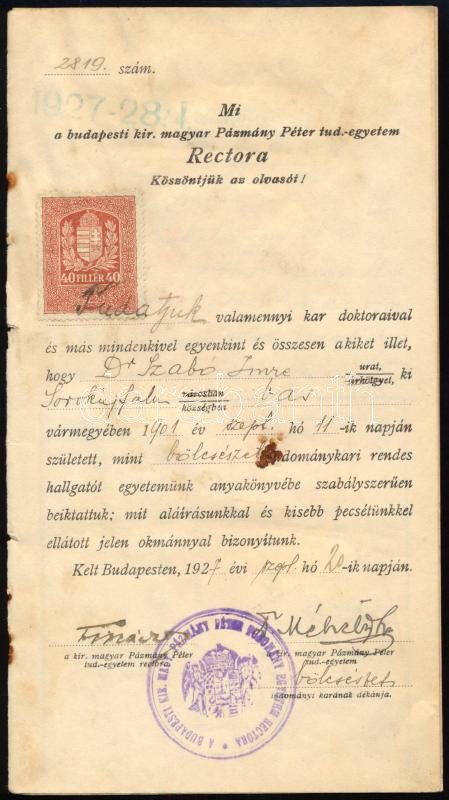 2819. szám.
1927-28.I.
Mi
a budapesti kir. magyar Pázmány Péter tud.-egyetem
Rectora
Köszöntjük az olvasót!
40 FILLÉR 40
Tudatjuk valamennyi kar doktoraival
és más mindenkivel egyenkint és összesen akiket illet,
hogy Dr Szabó Imre urat, férhölgyet, ki
Sorokujfalu városban községben Vas
vármegyében 1901 év szept. hó 11-ik napján
született, mint bölcsészet tudománykari rendes
hallgatót egyetemünk anyakönyvébe szabályszerűen
beiktattuk; mit aláirásunkkal és kisebb pecsétünkkel
ellátott jelen okmánnyal bizonyitunk.
Kelt Budapesten, 1927 évi szpt. hó 20-ik napján.
a kir. magyar Pázmány Péter
tud.-egyetem rectora.
a kir. magyar Pázmány Péter
tud.-egyetem
bölcsészet
tudományi karának dékánja.
A BUDAPESTI KIR. MAGY. PÁZMÁNY PÉTER TUDOMÁNY EGYETEM RECTORA